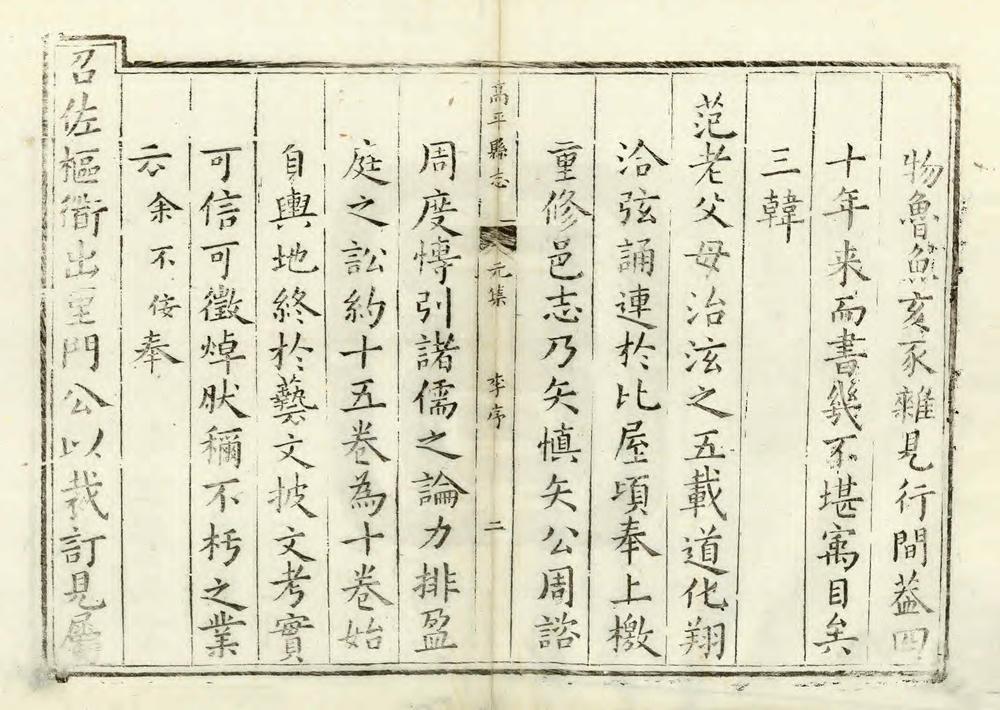 物魯魚亥豕雜見行間蓋四
十年来而書幾不堪寓目矣
三韓
范老父母治泫之五載道化翔
洽弦誦連於比屋頃奉上檄
重修邑志乃矢慎矢公周諮
高平縣志 元集 李序 二
周度愽引諸儒之論力排盈
庭之訟約十五卷為十卷始
自輿地終於藝文披文考實
可信可徵焯肰稱不朽之業
云余不佞奉
召佐樞衙出里門公以裁訂見屬